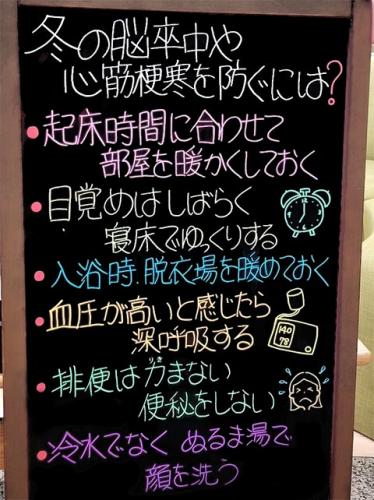 冬の脳卒中や
心筋梗寒を防ぐには?
・起床時間に合わせて
部屋を暖かくしておく
・目覚めはしばらく
寝床でゆっくりする
・入浴時、脱衣場を暖めておく
・血圧が高いと感じたら
深呼吸する
140
78
・排便は力まない
りき
便秘をしない
・冷水でなく ぬるま湯で
顔を洗う